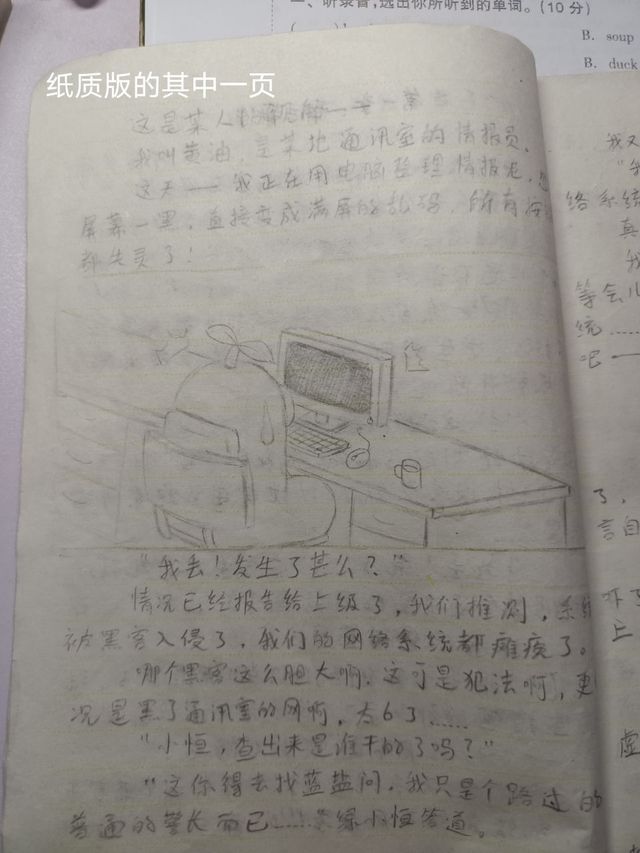 一、听录音,选出你所听到的单词。(10分)
B. soup
B. duck
纸质版的其中一页
这是某人
我叫黄油,是某地通讯室的情报员。
这天——我正在用电脑整理情报呢,忽
屏幕一黑,直接变成满屏的乱码,所有按
都失灵了!
“我丢!发生了甚么?”
情况已经报告给上级了,我们推测,系统
被黑客入侵了,我们的网络系统都瘫痪了。
哪个黑客这么胆大啊,这可是犯法啊,更
况是黑了通讯室的网啊,太6了……
“小恒,查出来是谁干的了吗?”
“这你得去找蓝盐问,我只是个路过的
普通的警长而已……”绿小恒答道。
我又
“我
络系统
真
我
等会儿
统……
吧——
了,
言自
吓了
上
虚